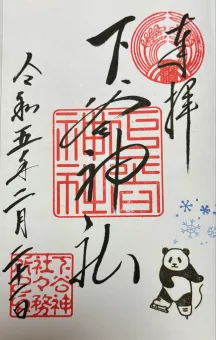 奉拝
下谷神社
下谷神社
令和五年二月
下谷神
社々務
所之印